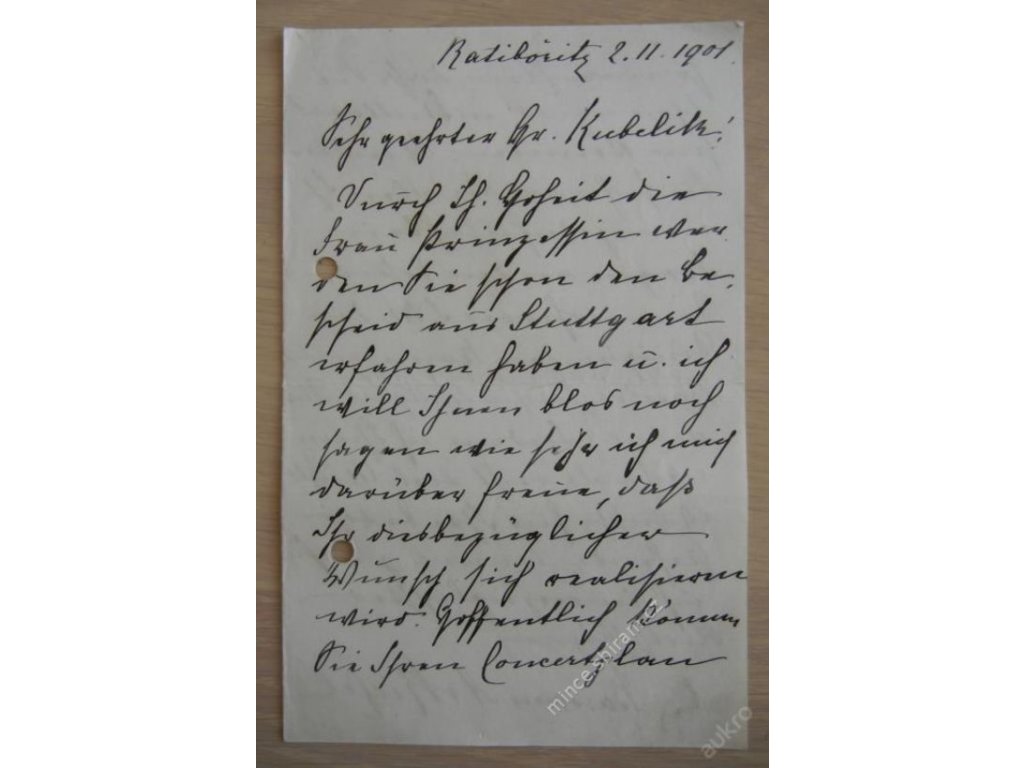 Ratibořitz 2.11.1901.
Sehr geehrter Hr. Kubelik!
Durch Ih. Hoheit die
Frau Prinzessin wer-
den Sie schon den Be-
scheid aus Stuttgart
erfahren haben u. ich
will Ihnen blos noch
sagen wie sehr ich mich
darüber freue, daß
Ihr diesbezüglicher
Wunsch sich realisieren
wird. Hoffentlich können
Sie Ihren Concertplan
auk.ro